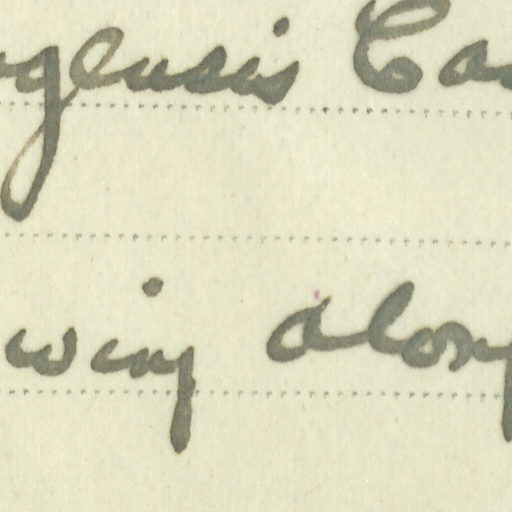 gensis Ca
wing along